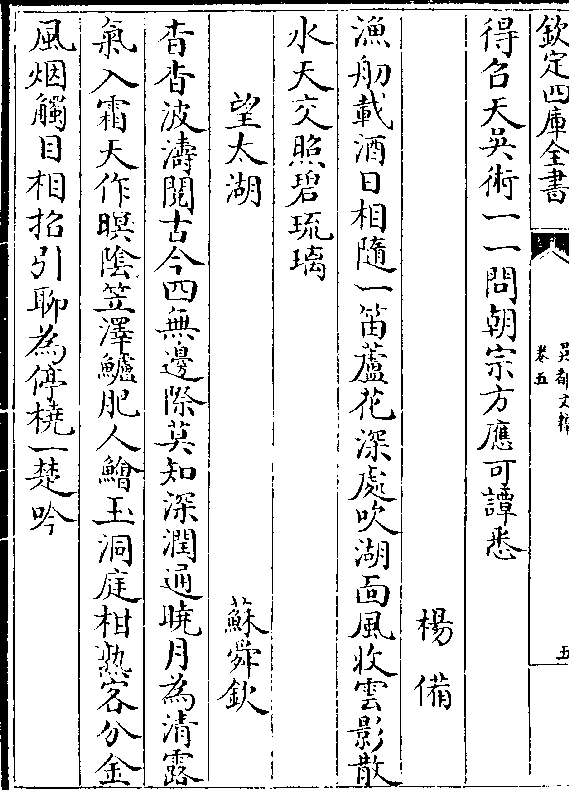 欽定四庫全書
吳都文粹
卷五
五
得召天吳術一一問朝宗方應可譚悉
楊備
漁舠載酒日相隨一笛蘆花深處吹湖面風收雲影散
水天交照碧琉璃
望太湖
蘇舜欽
杳杳波濤閱古今四無邊際莫知深潤通曉月為清露
氣入霜天作暝陰笠澤鱸肥人鱠玉洞庭柑熟客分金
風烟觸目相招引聊為停橈一楚吟